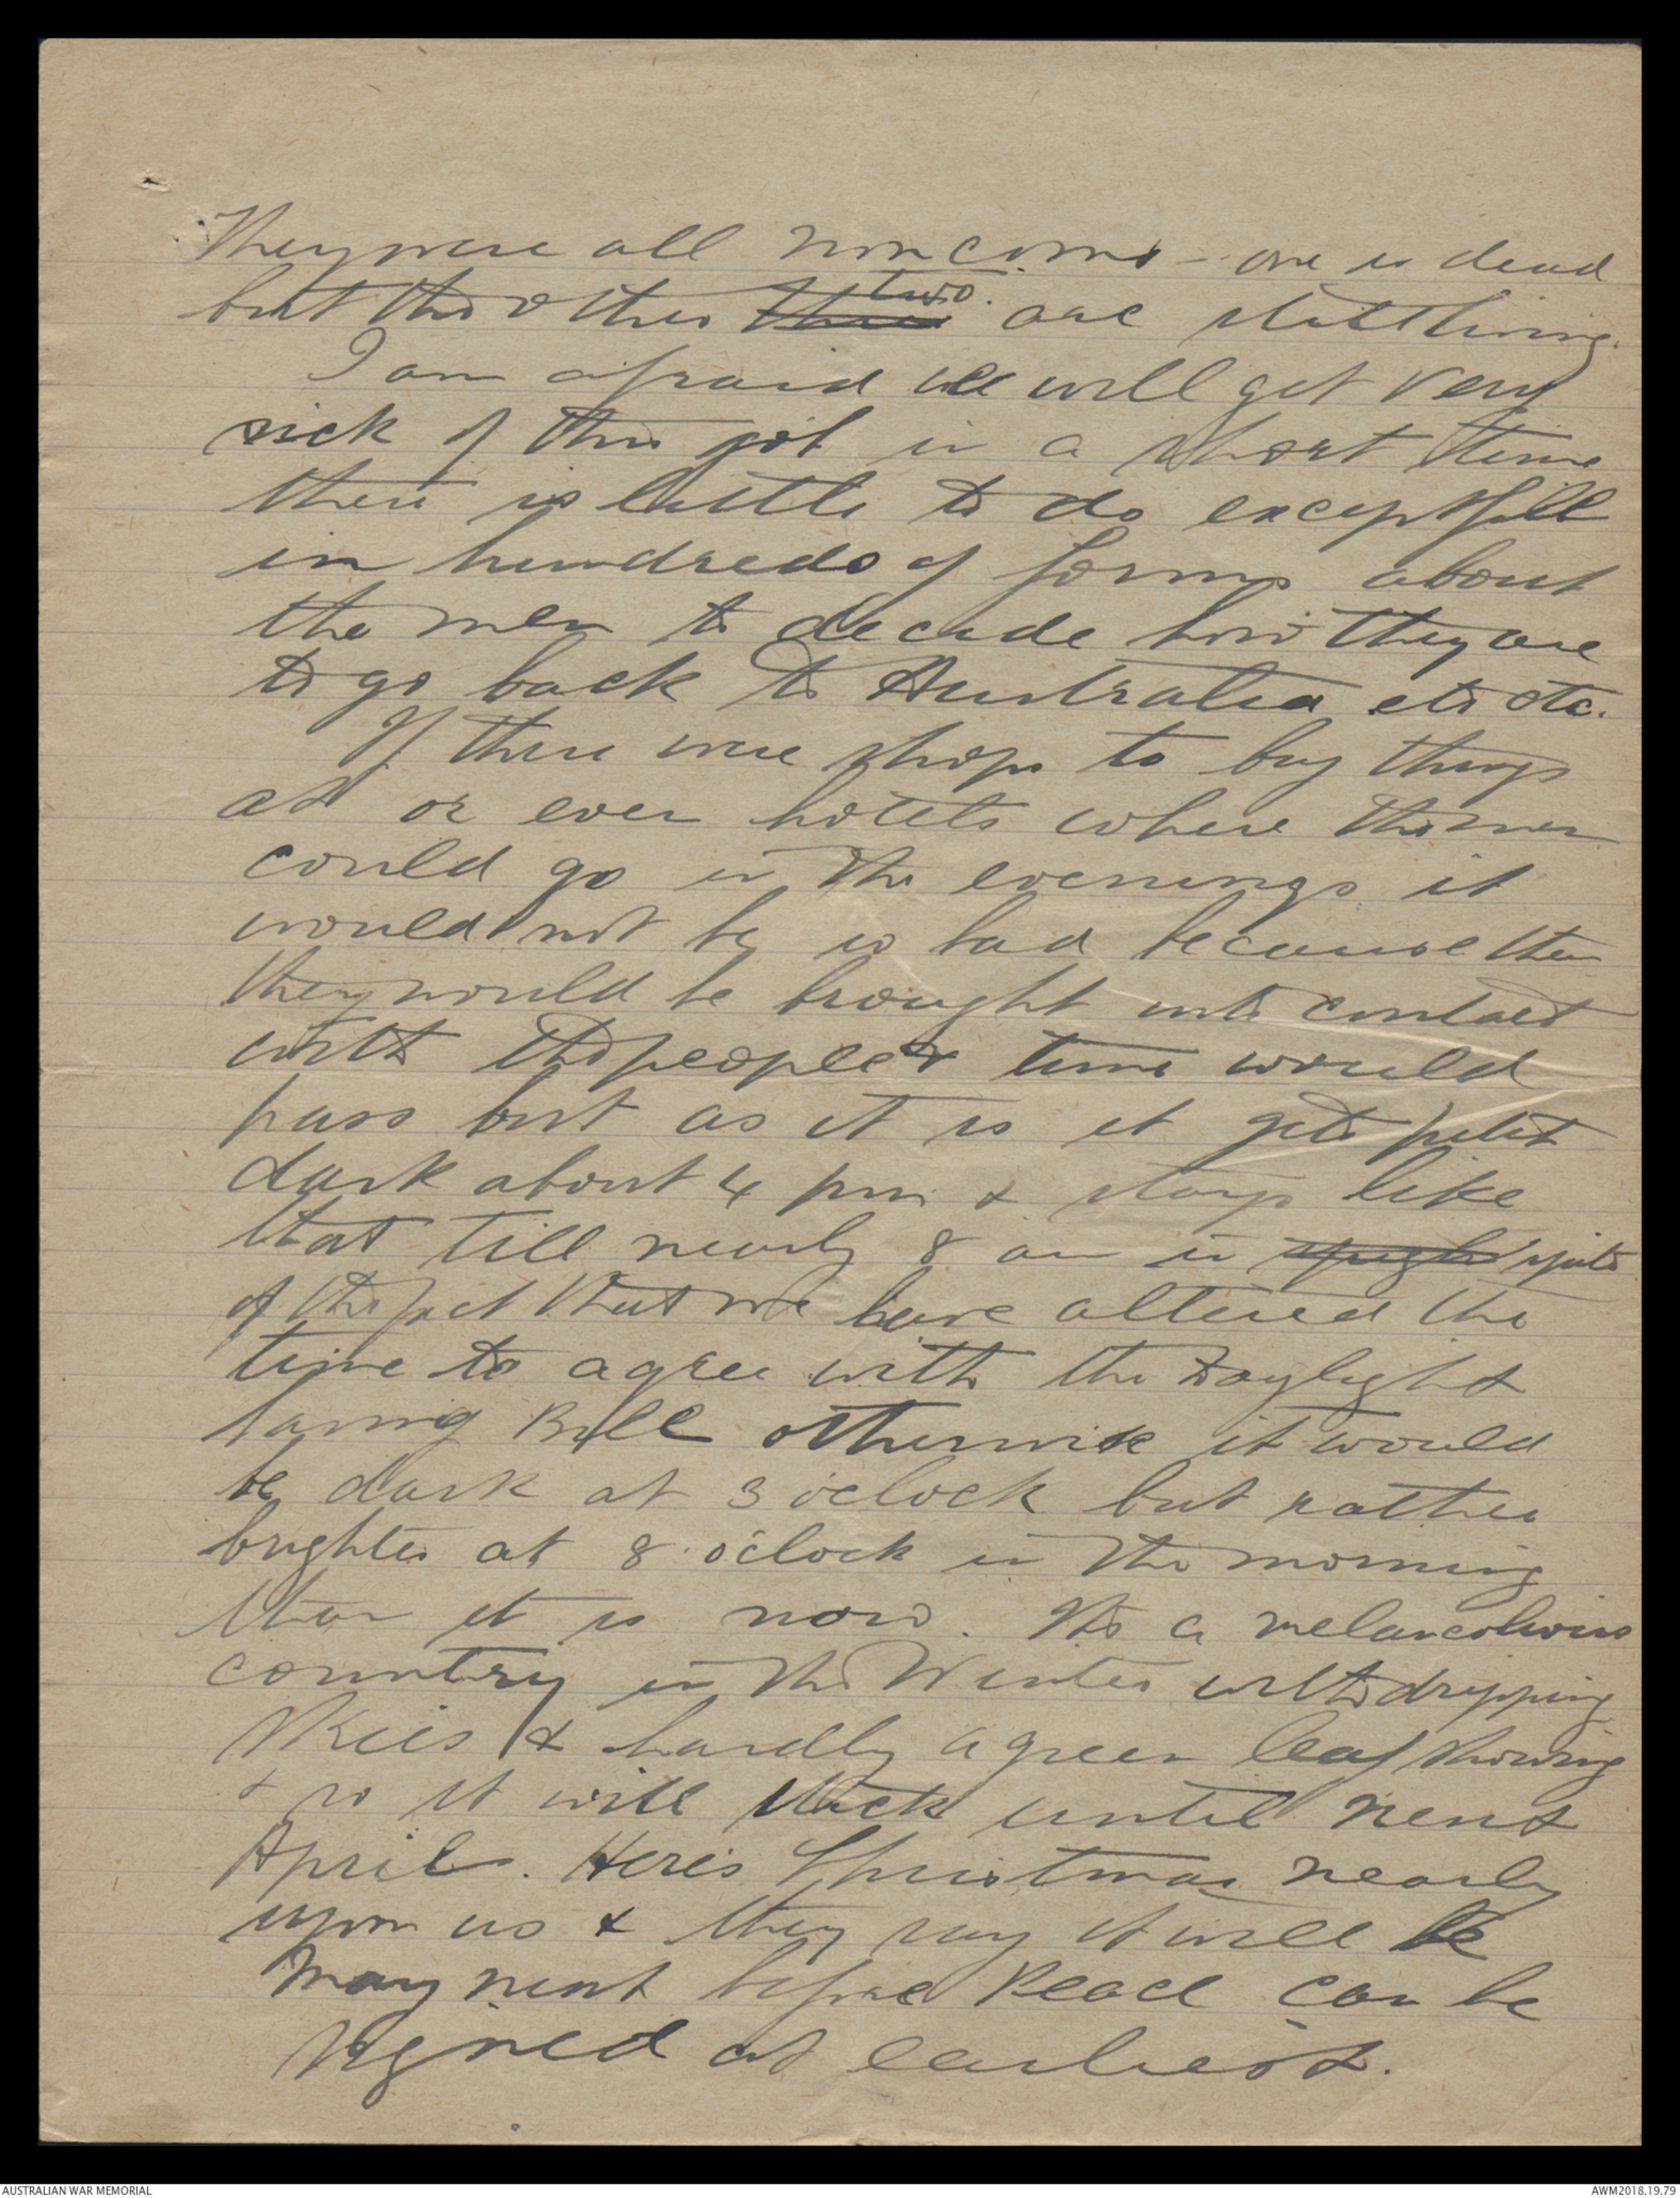 They were all non coms - one is dead
but the other three two. are still living.
I am afraid we will get very
sick of this job in a short time
there is little to do except fill
in hundreds of forms about
the men to decide how they are
to go back to Australia etc etc.
If there were shops to buy things
at or even hotels where the men
could go in the evenings it
would not be so bad because then
they would be brought into contact
with the people & time would
pass but as it is it gets
dark about 4 pm & stays like
that till nearly 8 am in spite
of the fact that we have altered the
time to agree with the Daylight
saving Bill otherwise it would
be dark at 3 o'clock but rather
brighter at 8 o'clock in the morning
than it is now. Its a melancolious
country in the Winter with dripping
skies & hardly a green leaf showing
& so it will stick until next
April. Here's Christmas nearly
upon us & they say it will be
May next before Peace can be
signed at earliest.
AUSTRALIAN WAR MEMORIAL
AWM2018.19.79